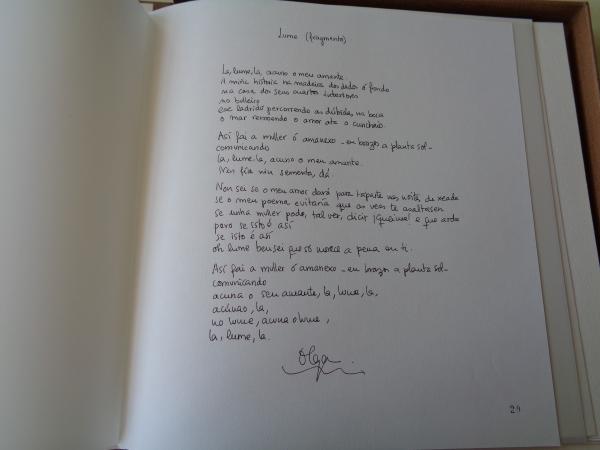 Lume (fragmento)
La, lume, la, acuno o meu amante.
A miña historia na madeira dos dedos ó fondo
na casa dos seus cuartos
no
ese ladrido percorrendo as dúbidas, na boca
o mar removendo o amor ata o
Así fai a muller ó amanexo -en brazos a planta sol-
comunicando
la, lume, la, acuno o meu amante.
semento, dá.
Non sei se o meu amor dará para tras noite de xeada
se o meu poema evitaría que as veas te asaltasen
se unha muller pode, tal vez, dicir ¡Quéima! e que arda
pero se isto é así
se isto é así
oh lume ben sei que só merece a pena en ti.
Así fai a muller ó amanexo -en brazos a planta sol-
comunicando
acuna o seu amante, la, lume, la,
acúnao, la,
no lume, acuna o lume,
la, lume, la.
Olga
29